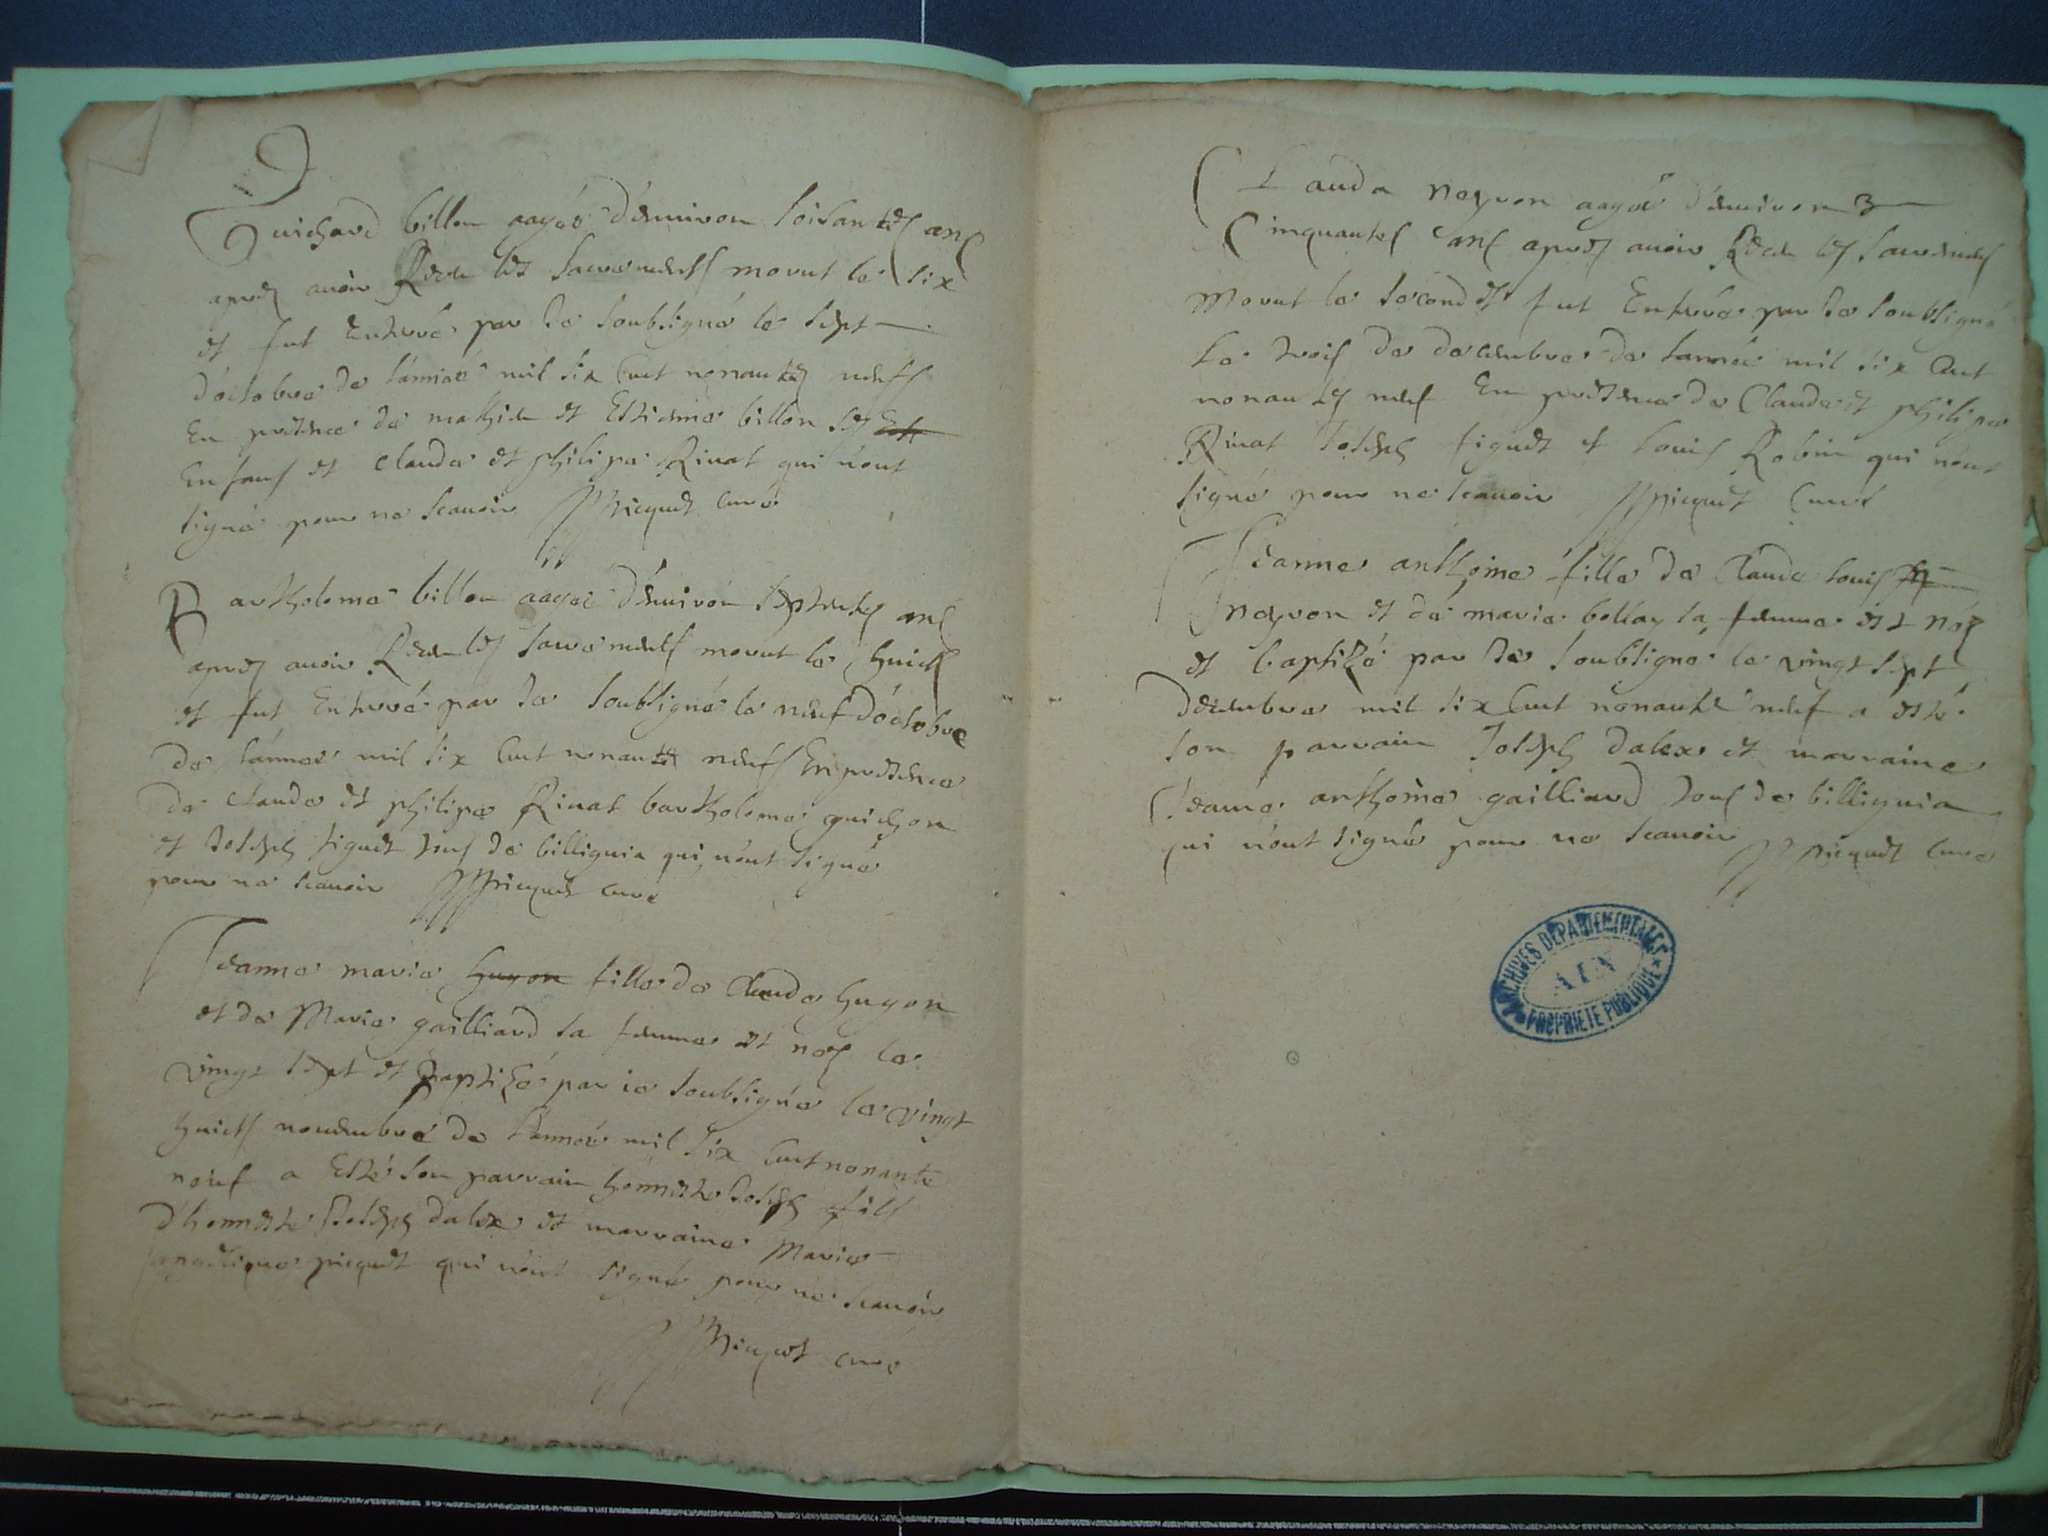 Guichard billon aagée d'enuiron soisantes ans
apres auoir Receu les sacremensts morut le six
et fut Enterré par ie soubsigné le sept
d'octobre de lánnée mil six cent nonantes neufs
En presence de mathieu et Estienne billon ses Enf
Enfans et claude et philipe Riuat qui n'ont
signé pour ne scauoir Picquet curé
Bartholome billon aagee d'enuiron septentes ans
apres auoir Receu les sacremensts morut le huicts
et fut Enterré par ie soubsigné le neuf d'octobre
de lánnée mil six cent nonantes neufs En presence
de claude et philipe Riuat bartholome guichon
et Joseph siguet tous de billignia qui n'ont signé
pour ne scauoir Picquet curé
Jeanne marie huyon fille de Claude huyon
et de Marie gailliard sa femme est née le
vingt sept et Baptizé par ie soubsigné le vingt
huicts nouembre de lánnée mil six cent nonante
neuf a Esté son parrain honneste Joseph fils
d'honneste Joseph dalex et marraine Marie
picquet qui n'ont signé pour ne scauoir
Picquet curé
Clauda neyron aagée d'enuiron
Cinquantes ans apres auoir Receu les sacremens
morut le second et fut Enterré par ie soubsigné
Le trois de decembre de lannée mil six cent
nonantes neuf En presence de Claude et philipe
Riuat Joseph siguet et Louis Robin qui n'ont
signé pour ne scauoir Picquet Curé
Jeanne anthoine fille de Claude louis
neyron et de marie sa femme est née
et baptizé par ie soubsigné le vingt sept
decembre mil six cent nonante neuf a esté
son parrain Joseph dalex et marraine
Jeanne anthoine gailliard tous de billignia
qui n'ont signé pour ne scauoir Picquet curé
ARCHIVES DÉPARTEMENTALES
AIN
PROPRIÉTÉ PUBLIQUE